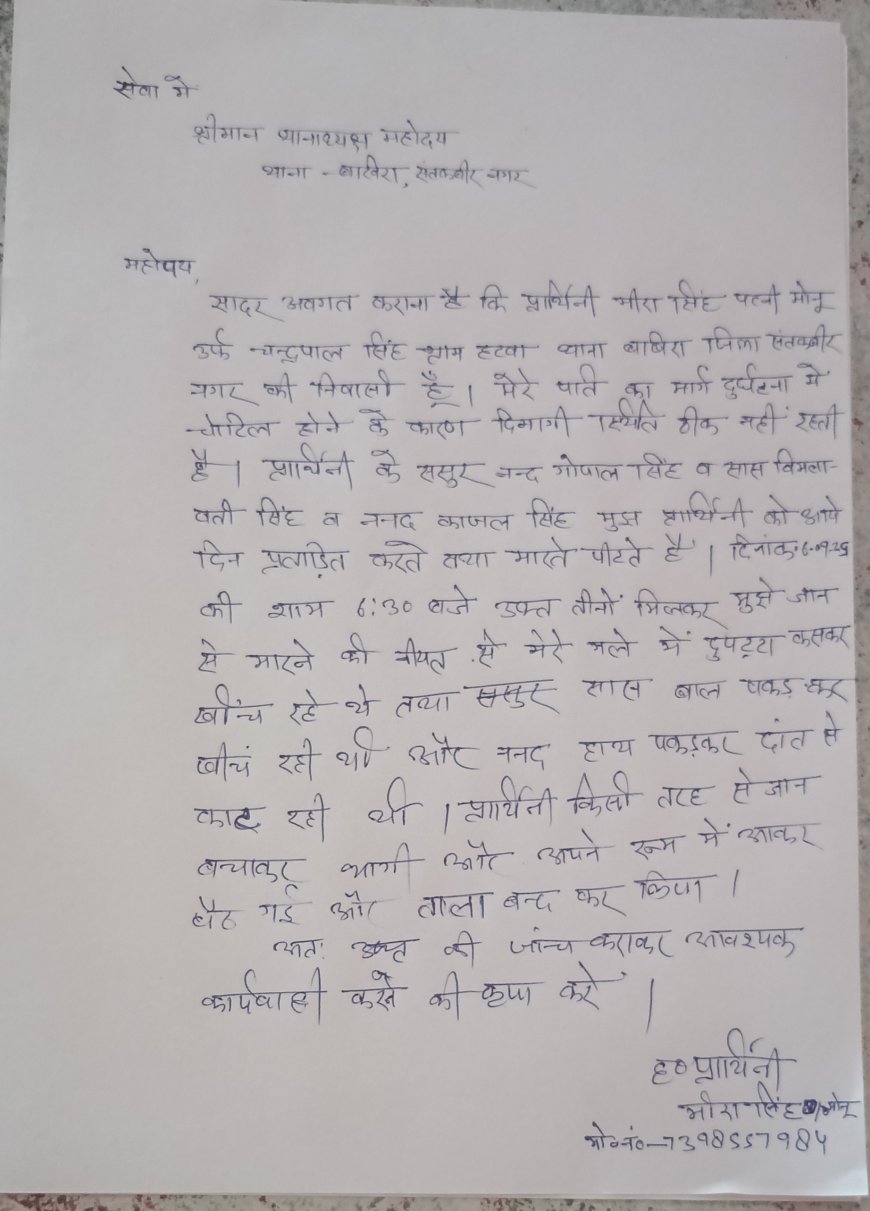 सेवा में
श्रीमान थानाध्यक्ष महोदय
थाना - बाखिरा, संतकबीर नगर
महोदय,
सादर अवगत कराना है कि प्रार्थिनी मीरा सिंह पत्नी मोनू
उर्फ चन्द्रपाल सिंह ग्राम हटवा थाना बाखिरा जिला संतकबीर
नगर की निवासी हूँ। मेरे पति का मार्ग दुर्घटना में
चोटिल होने के कारण दिमागी स्थिति ठीक नहीं रहती
है। प्रार्थिनी के ससुर नन्द गोपाल सिंह व सास विमला-
वती सिंह व ननद काजल सिंह मुझ प्रार्थिनी को आये
दिन प्रताड़ित करते तथा मारते पीटते है। दिनांक: 6-09-25
की शाम 6:30 बजे उक्त तीनों मिलकर मुझे जान
से मारने की नीयत से मेरे गले में दुपट्टा कसकर
खींच रहे थे तथा ससुर सास बाल पकड़ कर
खींच रही थी और ननद हाथ पकड़कर दांत से
काट रही थी। प्रार्थिनी किसी तरह से जान
बचाकर भागी और अपने रूम में आकर
बैठ गई और ताला बन्द कर लिया।
अतः उक्त की जांच कराकर आवश्यक
कार्यवाही करने की कृपा करें।
ह० प्रार्थिनी
मीरा सिंह /मोनू
मो०नं०-7398557984